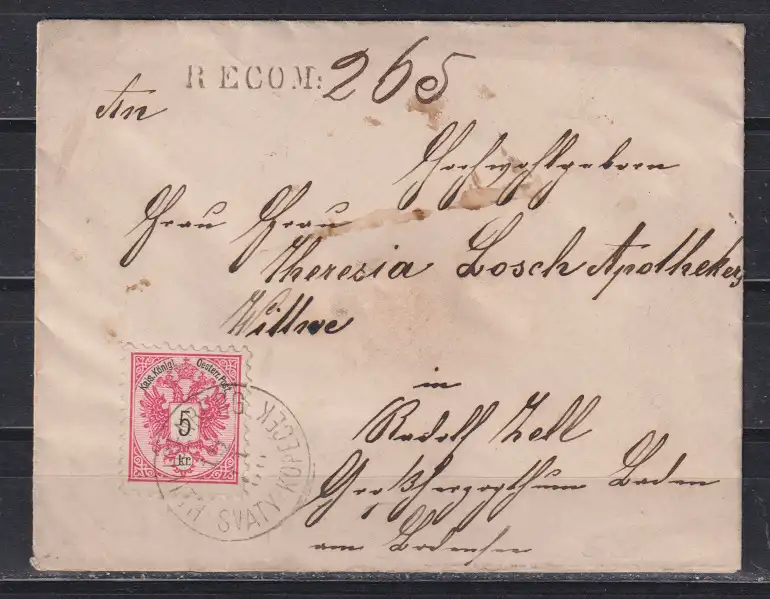 RECOM: 265
An
Hochwohlgeboren
Frau Frau
Therezia Bosch Apothekers
Wittwe
in
Radolf Zell
Großherzogthum Baden
am Bodensee
Kais. Königl. Oesterr. Post
5
kr
SVATY KOPEČEK